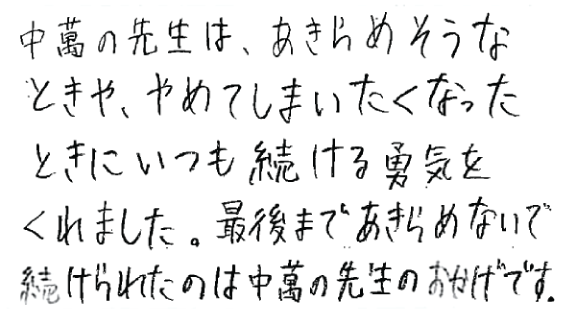 中萬の先生は、あきらめそうな
ときや、やめてしまいたくなった
ときにいつも続ける勇気を
くれました。最後まであきらめないで
続けられたのは中萬の先生のおかげです.